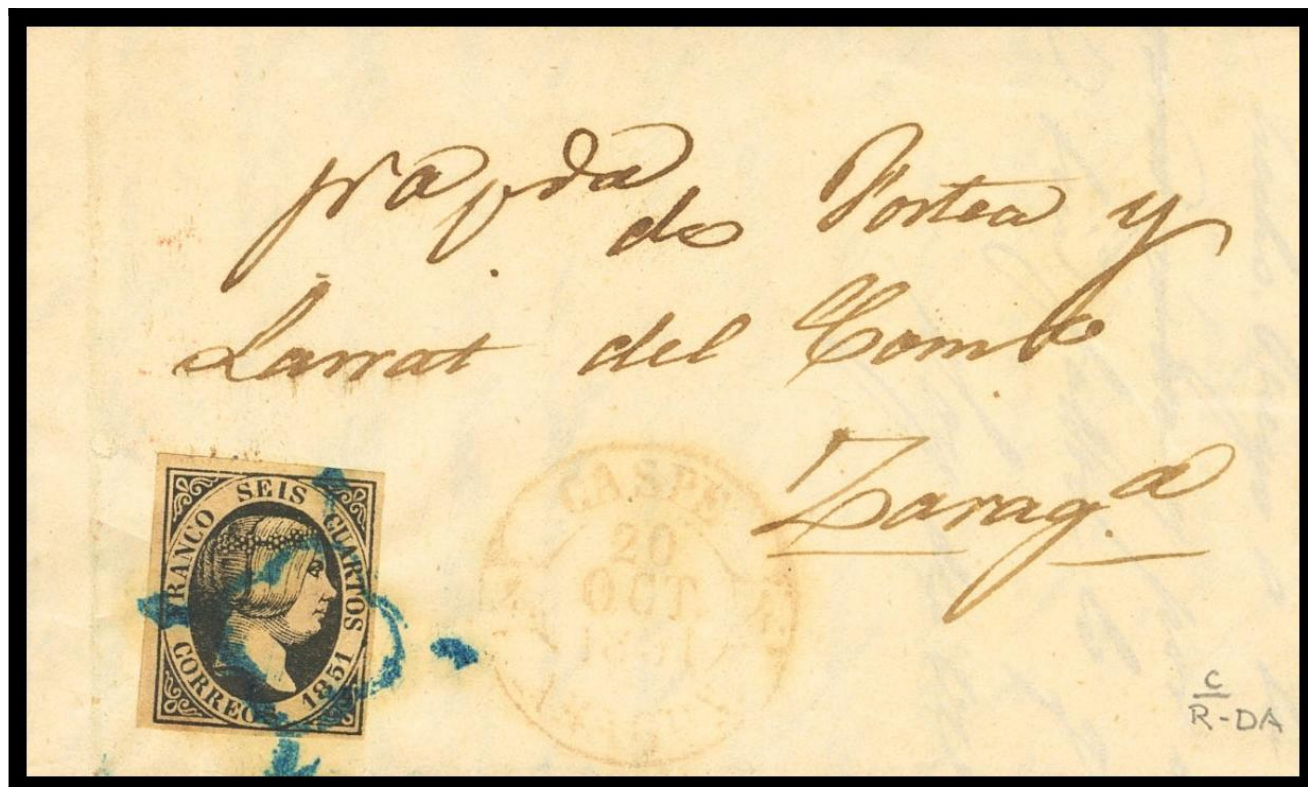 de Portea y
Larrat del Comº
Zarag.ª
FRANCO SEIS CUARTOS
CORREOS 1851
CASPE
20
OCT
1851
C
R-DA